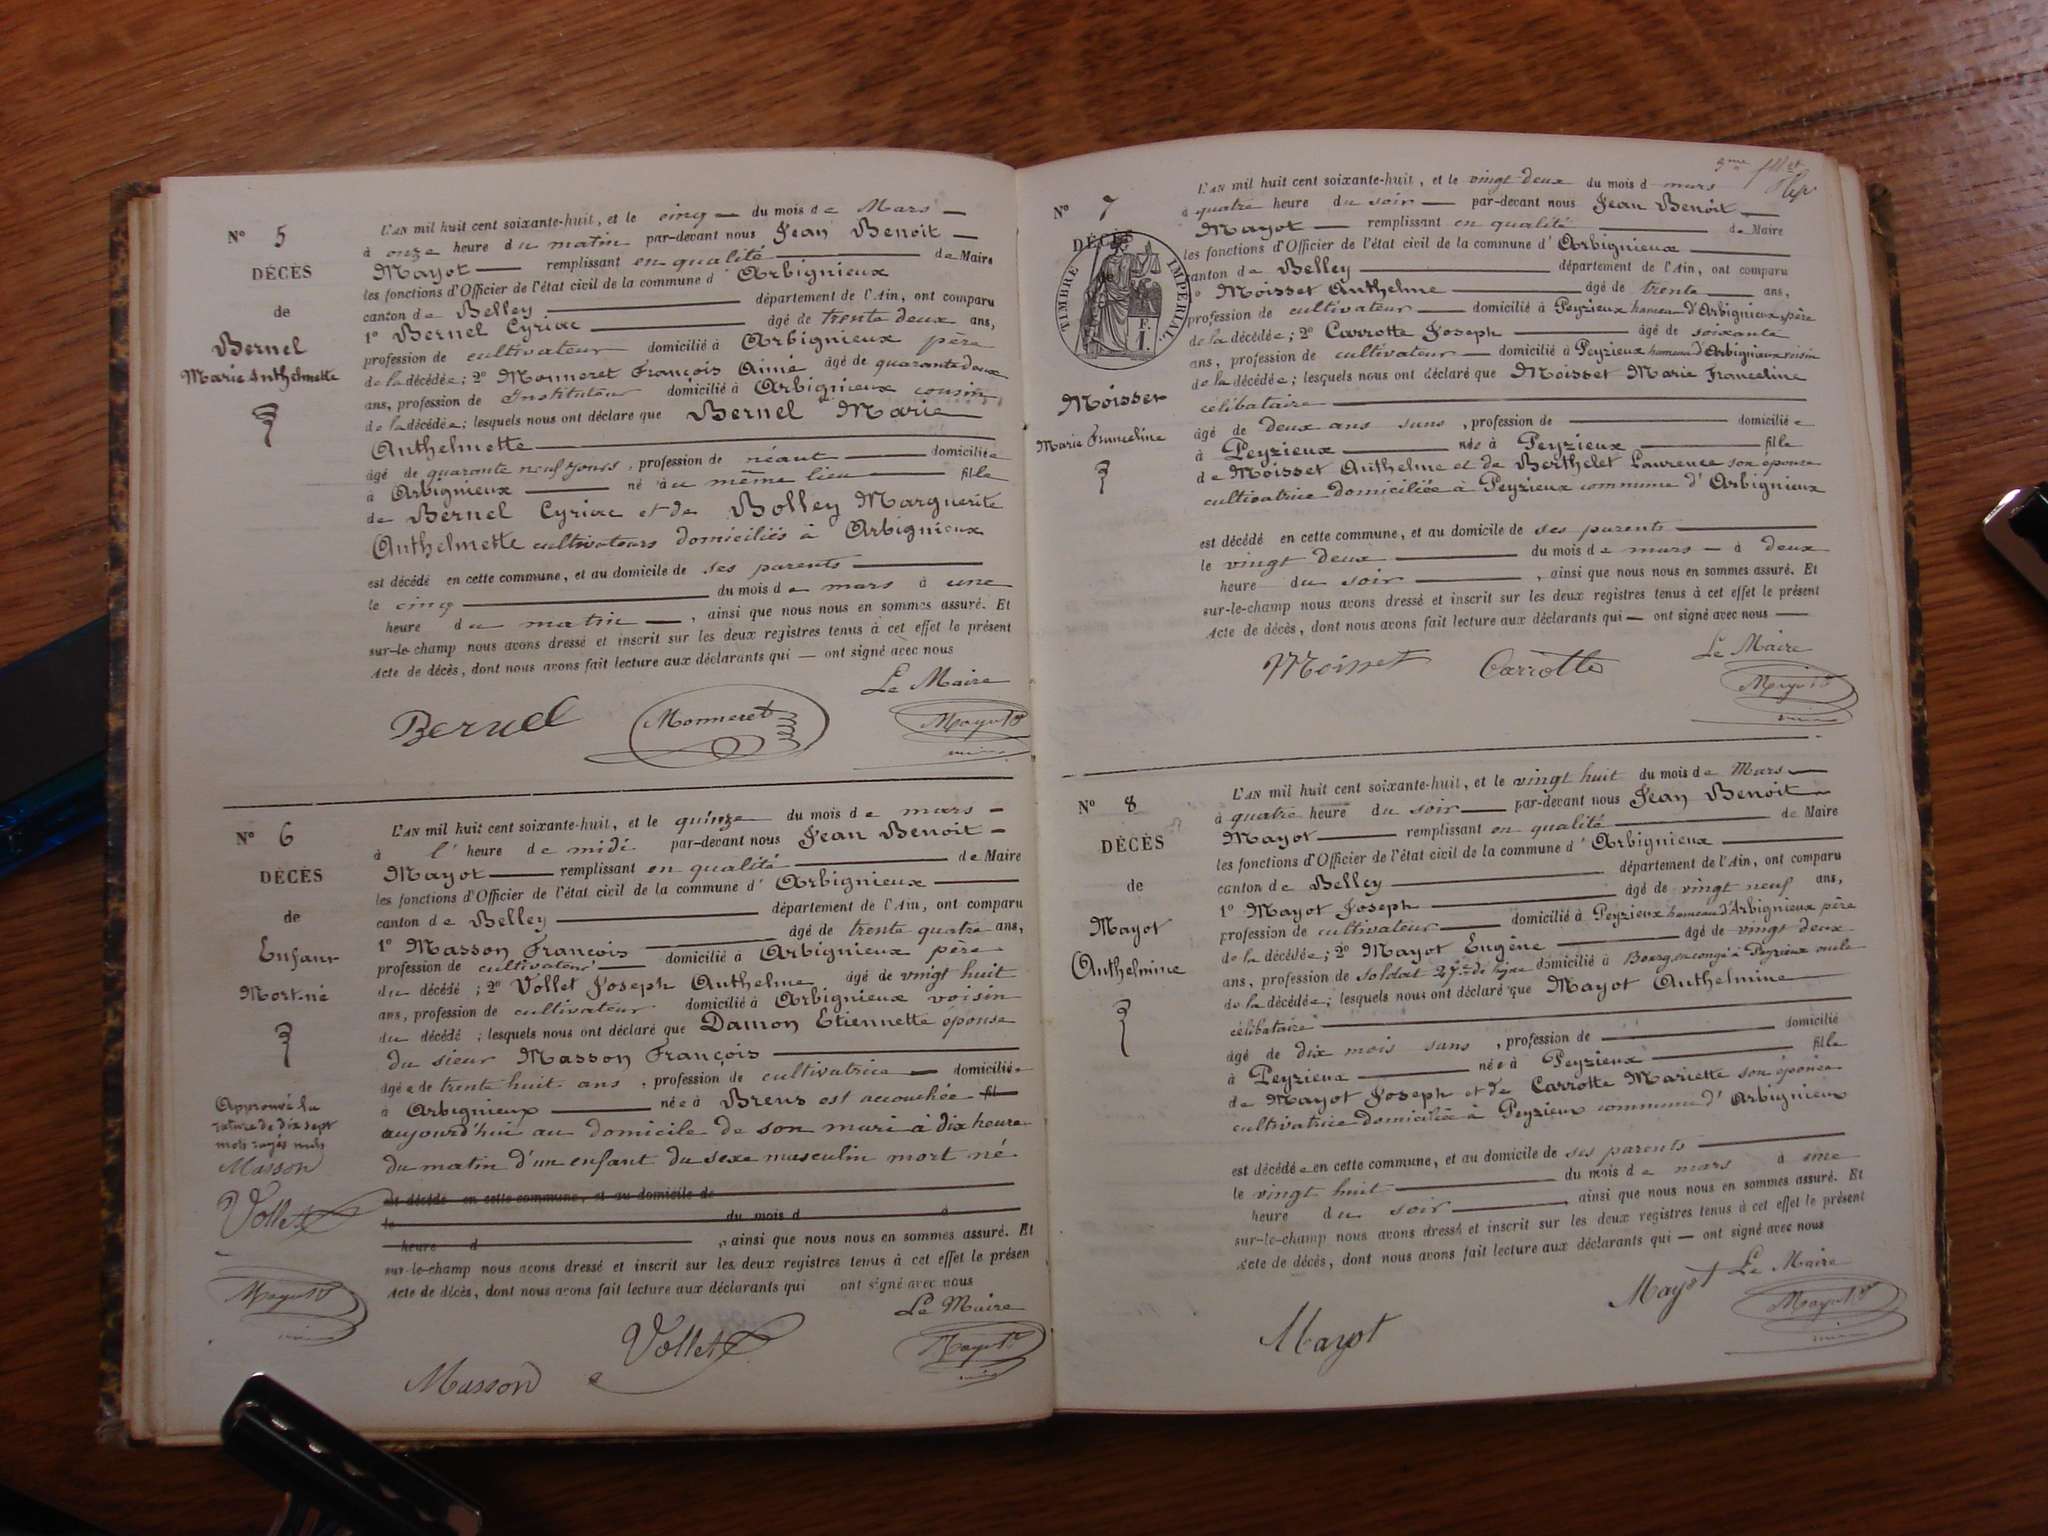 N° 5
DÉCÈS
de
Bernel
Marie Anthelmette
L'AN mil huit cent soixante-huit, et le cinq du mois de Mars
à onze heure du matin par-devant nous Jean Benoit
Mayot remplissant en qualité de Maire
les fonctions d'Officier de l'état civil de la commune d' Arbignieux
canton de Belley département de l'Ain, ont comparu
1° Bernel Cyriac âgé de trente deux ans,
profession de cultivateur domicilié à Arbignieux père
de la décédée; 2° Monneret François Aimé âgé de quarante deux
ans, profession de Instituteur domicilié à Arbignieux cousin
de la décédée; lesquels nous ont déclaré que Bernel Marie
Anthelmette
âgé de quarante neuf jours, profession de néant domiciliée
à Arbignieux né au même lieu fille
de Bernel Cyriac et de Bolley Marguerite
Anthelmette cultivateurs domiciliés à Arbignieux
est décédé en cette commune, et au domicile de ses parents
le cinq du mois de mars à une
heure du matin, ainsi que nous nous en sommes assuré. Et
sur-le-champ nous avons dressé et inscrit sur les deux registres tenus à cet effet le présent
Acte de décès, dont nous avons fait lecture aux déclarants qui — ont signé avec nous
Le Maire
Bernel Monneret Mayot
N° 6
DÉCÈS
de
Enfant
Mort-né
Approuvé la
rature de dix sept
mots rayés nuls
Masson
Vollet
Mayot
L'AN mil huit cent soixante-huit, et le quinze du mois de mars
à l' heure de midi par-devant nous Jean Benoit
Mayot remplissant en qualité de Maire
les fonctions d'Officier de l'état civil de la commune d' Arbignieux
canton de Belley département de l'Ain, ont comparu
1° Masson François âgé de trente quatre ans,
profession de cultivateur domicilié à Arbignieux père
du décédé; 2° Vollet Joseph Anthelme âgé de vingt huit
ans, profession de cultivateur domicilié à Arbignieux voisin
du décédé; lesquels nous ont déclaré que Damon Etiennette épouse
du sieur Masson François
âgée de trente huit ans, profession de cultivatrice domiciliée
à Arbignieux née à Brens est accouchée fil
aujourd'hui au domicile de son mari à dix heure
du matin d'un enfant du sexe masculin mort né
est décédé en cette commune, et au domicile de
le du mois d à
heure d, ainsi que nous nous en sommes assuré. Et
sur-le-champ nous avons dressé et inscrit sur les deux registres tenus à cet effet le présen
Acte de décès, dont nous avons fait lecture aux déclarants qui ont signé avec nous
Le Maire
Masson Vollet Mayot
N° 7
DÉCÈS
de
TIMBRE IMPÉRIAL
F.
1.
Moisset
Marie Franceline
L'AN mil huit cent soixante-huit, et le vingt deux du mois d mars
à quatre heure du soir par-devant nous Jean Benoit
Mayot remplissant en qualité de Maire
les fonctions d'Officier de l'état civil de la commune d' Arbignieux
canton de Belley département de l'Ain, ont comparu
1° Moisset Anthelme âgé de trente ans,
profession de cultivateur domicilié à Peyzieux hameau d'Arbignieux père
de la décédée; 2° Carrotte Joseph âgé de soixante
ans, profession de cultivateur domicilié à Peyzieux hameau d'Arbignieux voisin
de la décédée; lesquels nous ont déclaré que Moisset Marie Franceline
célibataire
âgé de deux ans sans, profession de domiciliée
à Peyzieux née à Peyzieux fille
de Moisset Anthelme et de Berthelet Laurence son épouse
cultivatrice domiciliée à Peyzieux commune d' Arbignieux
est décédé en cette commune, et au domicile de ses parents
le vingt deux du mois de mars à deux
heure du soir, ainsi que nous nous en sommes assuré. Et
sur-le-champ nous avons dressé et inscrit sur les deux registres tenus à cet effet le présent
Acte de décès, dont nous avons fait lecture aux déclarants qui — ont signé avec nous
Le Maire
Moisset Carrotte Mayot
N° 8
DÉCÈS
de
Mayot
Anthelmine
L'AN mil huit cent soixante-huit, et le vingt huit du mois de Mars
à quatre heure du soir par-devant nous Jean Benoit
Mayot remplissant en qualité de Maire
les fonctions d'Officier de l'état civil de la commune d' Arbignieux
canton de Belley département de l'Ain, ont comparu
1° Mayot Joseph âgé de vingt neuf ans,
profession de cultivateur domicilié à Peyzieux hameau d'Arbignieux père
de la décédée; 2° Mayot Eugène âgé de vingt deux
ans, profession de soldat 27me de ligne domicilié à Bourg, en congé à Peyzieux oncle
de la décédée; lesquels nous ont déclaré que Mayot Anthelmine
célibataire
âgé de dix mois sans, profession de domicilié
à Peyzieux née à Peyzieux fille
de Mayot Joseph et de Carrotte Mariette son épouse
cultivatrice domiciliée à Peyzieux commune d' Arbignieux
est décédée en cette commune, et au domicile de ses parents
le vingt huit du mois de mars à une
heure du soir ainsi que nous nous en sommes assuré. Et
sur-le-champ nous avons dressé et inscrit sur les deux registres tenus à cet effet le présent
Acte de décès, dont nous avons fait lecture aux déclarants qui — ont signé avec nous
Le Maire
Mayot Mayot Mayot